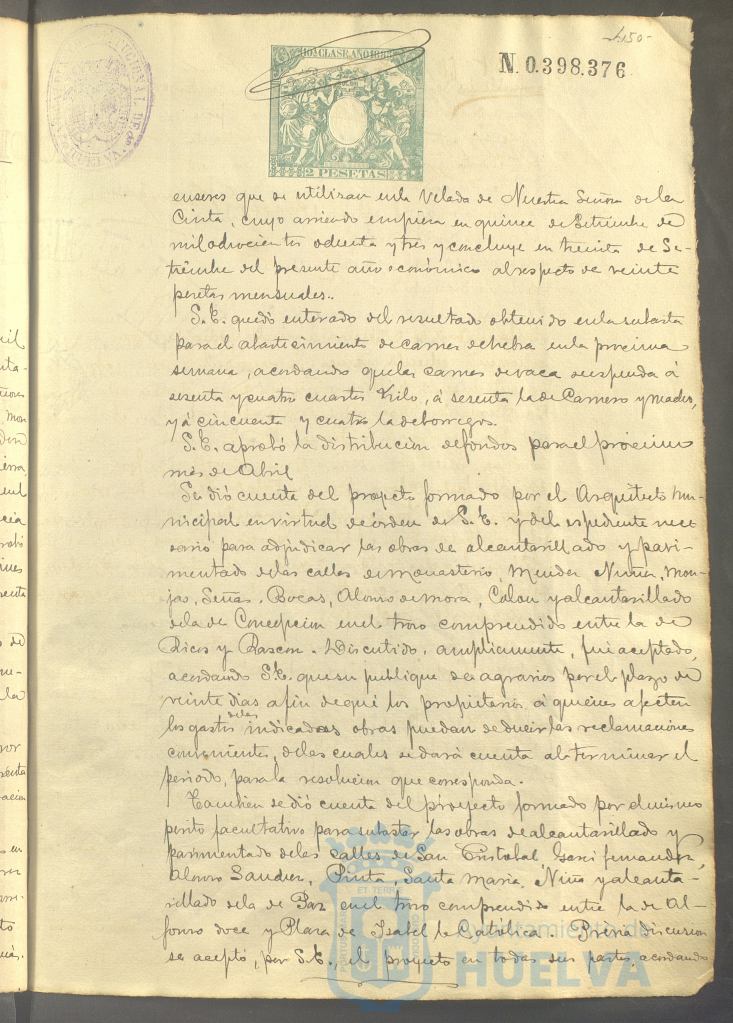 150-
10ª CLASE. AÑO 1883
N. 0.398.376
2 PESETAS
enseres que se utilizan en la Velada de Nuestra Señora de la
Cinta, cuyo arriendo empieza en quince de Setiembre de
mil ochocientos ochenta y tres y concluye en treinta de Se-
tiembre del presente año económico al respecto de veinte
pesetas mensuales.
S.E. quedó enterado del resultado obtenido en la subasta
para el abastecimiento de carnes de hebra en la procsima
semana, acordando que las carnes de vaca se espenda á
sesenta y cuatro cuartos Kilo, á sesenta la de Carnero y macho,
y á cincuenta y cuatro la de borregos.
S.E. aprobó la distribucion de fondos para el procsimo
mes de Abril
Se dió cuenta del proyecto formado por el Arquitecto mu-
nicipal en virtud de órden de S.E. y del espediente nece
sario para adjudicar las obras de alcantarillado y pavi-
mentado de las calles de Monasterio, Mendez Nuñez, Mon-
jas, Señas, Bocas, Alonso de Mora, Colon y alcantarillado
de la de Concepcion en el trozo comprendido entre la de
Ricos y Rascon. Discutido, ampliamente, fué aceptado,
acordando S.E. que su publique
por el plazo de
veinte dias a fin de que los propietarios á quienes afecten
los gastos de las indicadas obras puedan deducir las reclamaciones
convenientes, de las cuales se dará cuenta al terminar el
periodo, para la resolucion que corresponda.
Tambien se dió cuenta del proyecto formado por el mismo
perito facultativo para subastar las obras de alcantarillado y
pavimentado de las calles de San Cristobal, Garci Fernandez,
Alonso Sanchez, Pinta, Santa Maria, Niña y alcanta-
rillado de la de Paz en el trozo comprendido entre la de Al-
fonso doce y Plaza de Isabel la Católica. Prévia discusion
se aceptó, por S.E., el proyecto en todas sus partes, acordando
Ayuntamiento de
HUELVA